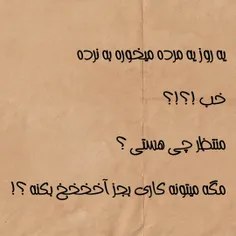 یه روز یه مرده میخوره به نرده
خب !؟!؟
منتظر چی هستی ؟
مگه میتونه کاری بجز آخخخخ بکنه ؟!